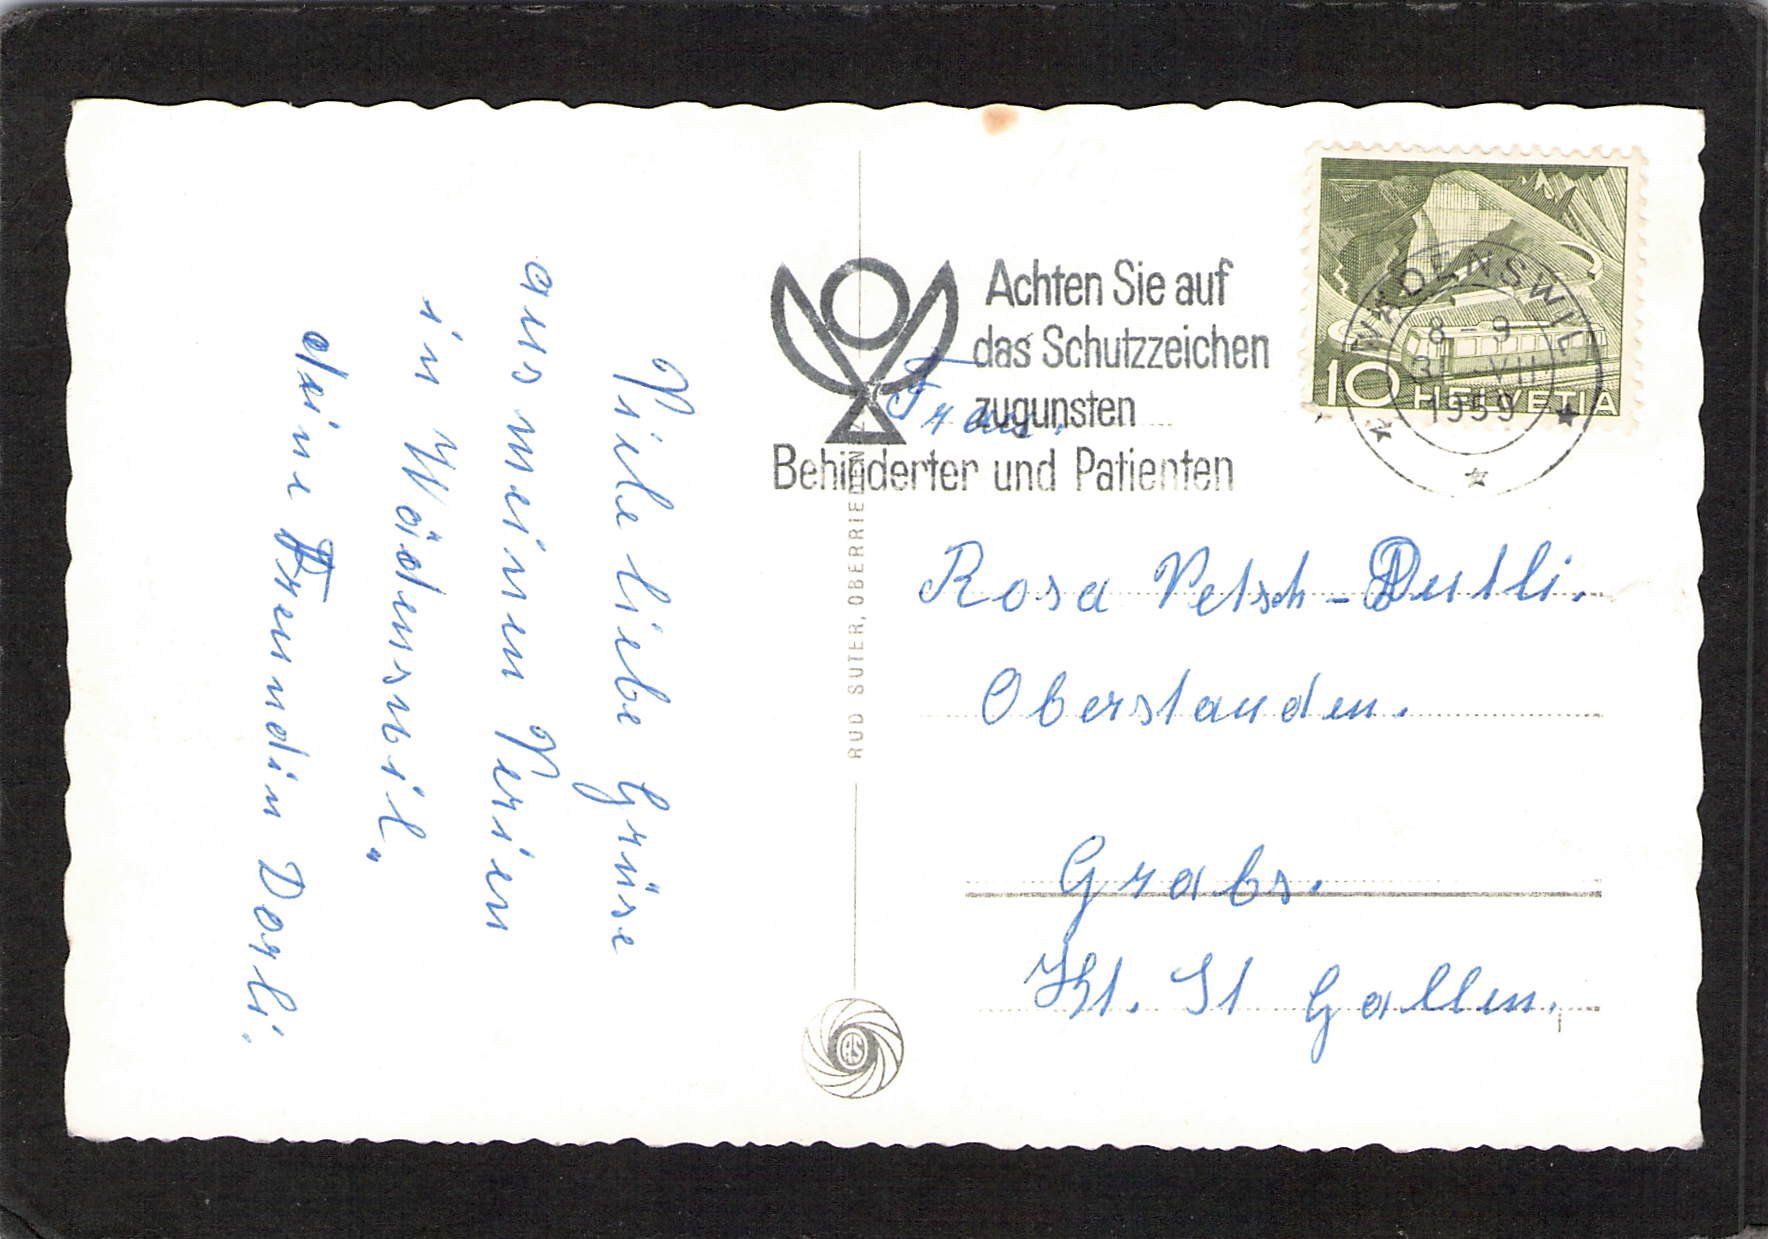 Viele liebe Grüse
aus meinen Ferien
in Wädenswil.
deine Freundin Dorli.
Achten Sie auf
das Schutzzeichen
zugunsten
Behinderter und Patienten
WÄDENSWIL
8-9
VII
1959
10 HELVETIA
Frau.
Rosa Vetsch-Beutli.
Oberstauden.
Grabs.
Kt. St Gallen.
RUD SUTER, OBERRIEDEN